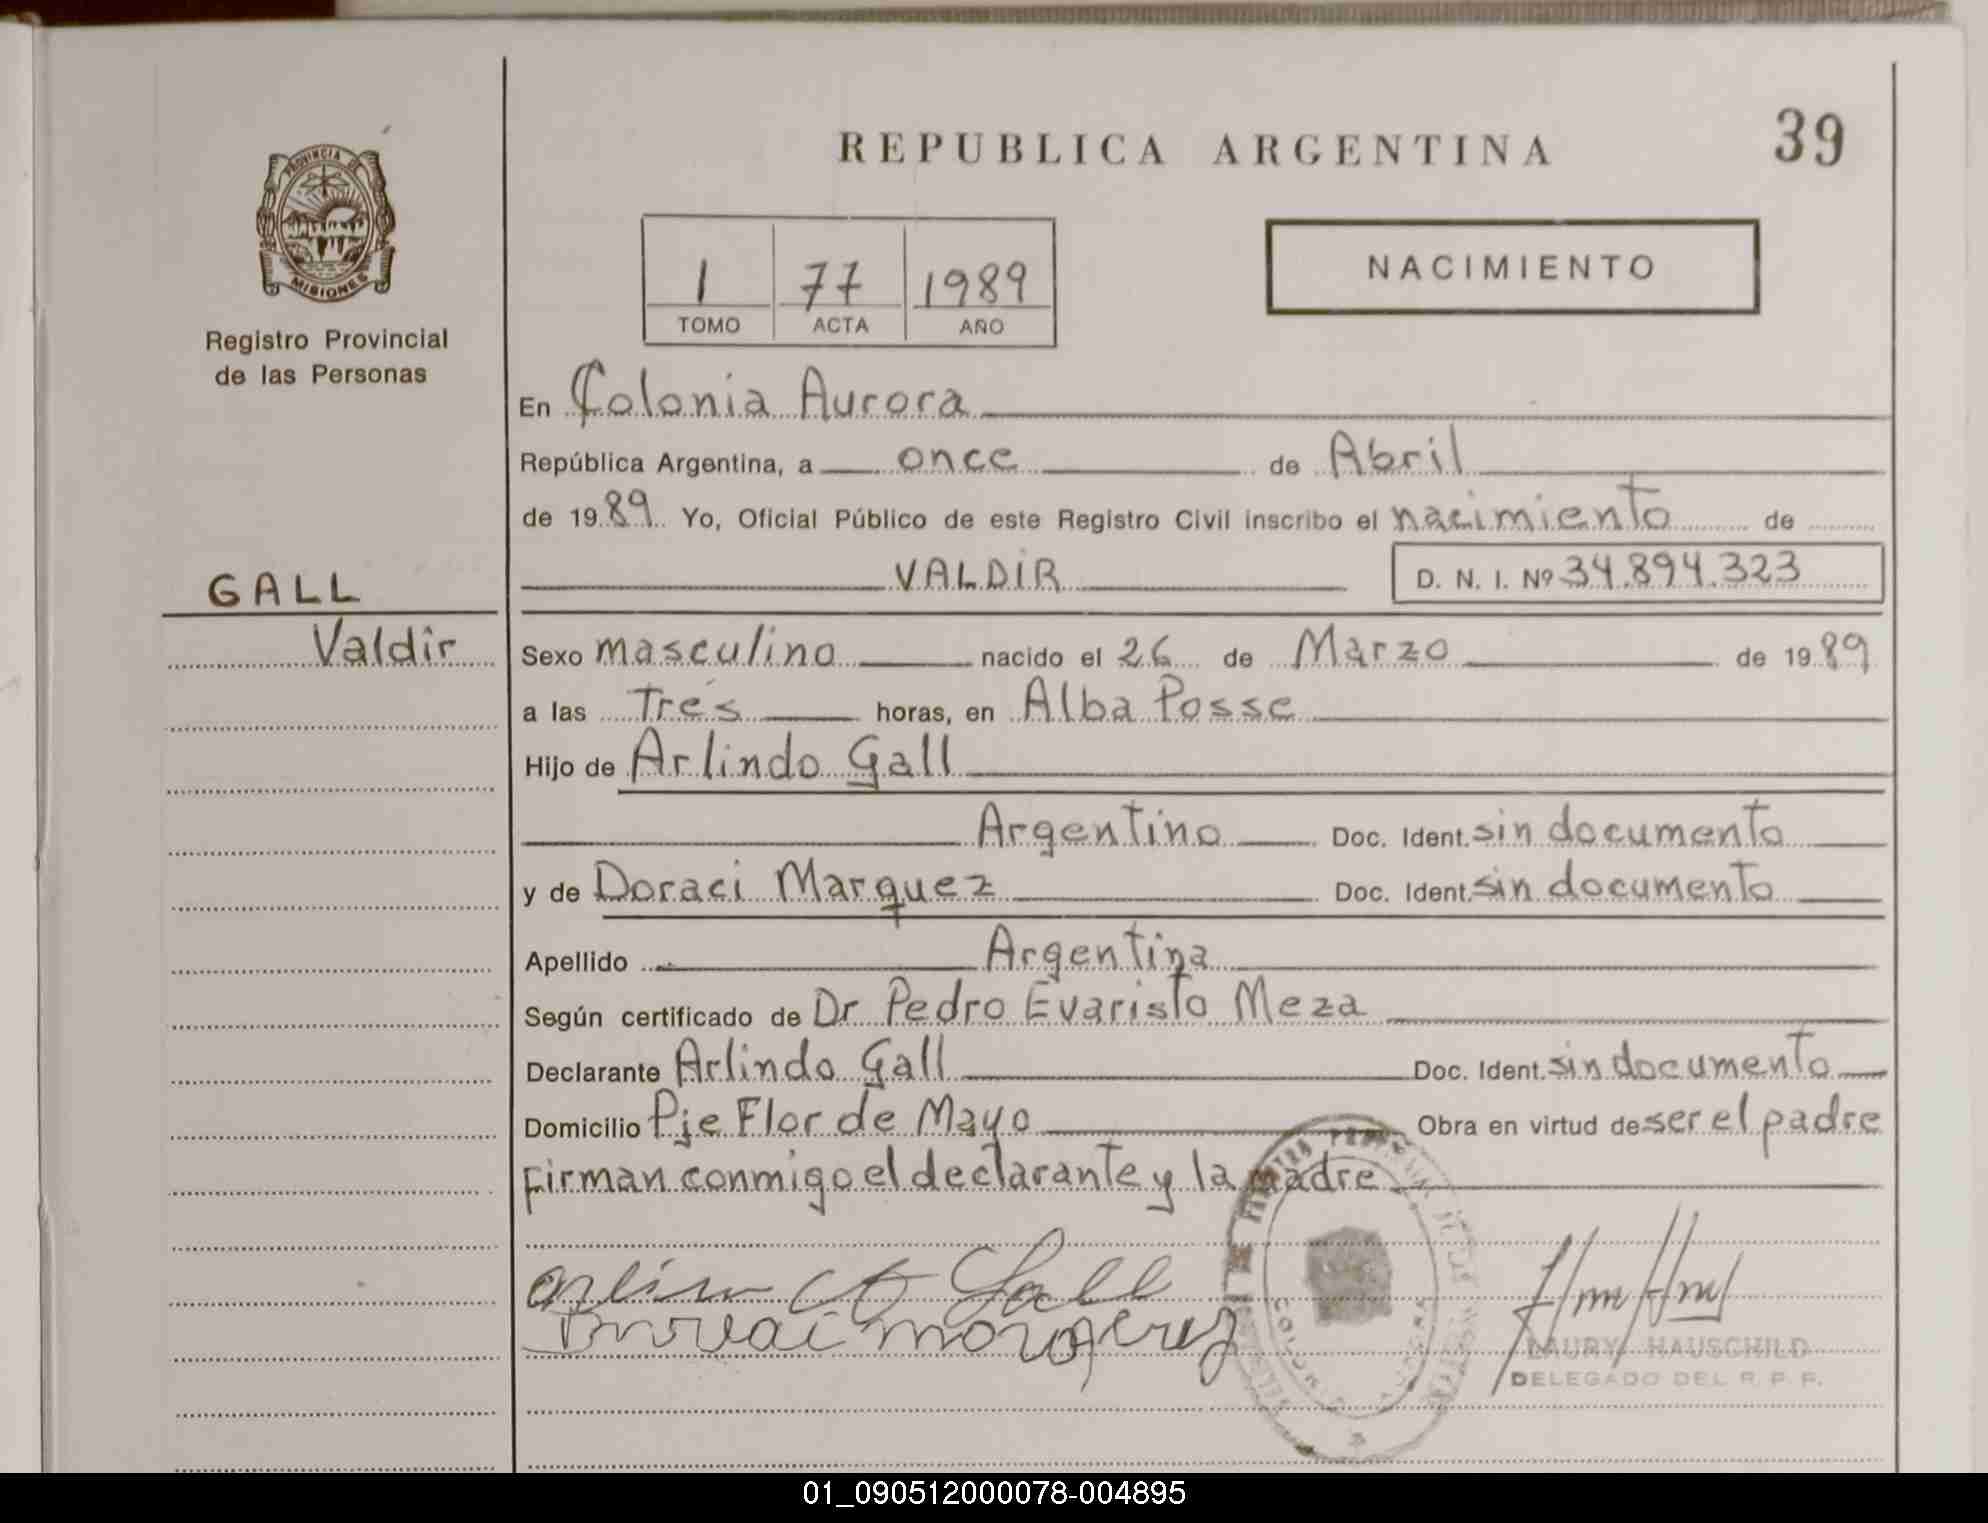 REPUBLICA ARGENTINA
39
PROVINCIA DE
MISIONES
Registro Provincial
de las Personas
1 77 1989
TOMO ACTA AÑO
NACIMIENTO
En Colonia Aurora
República Argentina, a once de Abril
de 1989 Yo, Oficial Público de este Registro Civil inscribo el nacimiento de
VALDIR D. N. I. Nº 34.894.323
GALL
Valdir
Sexo masculino nacido el 26 de Marzo de 1989
a las Tres horas, en Alba Posse
Hijo de Arlindo Gall
Argentino Doc. Ident. sin documento
y de Doraci Marquez Doc. Ident. sin documento
Apellido Argentina
Según certificado de Dr Pedro Evaristo Meza
Declarante Arlindo Gall Doc. Ident. sin documento
Domicilio Pje Flor de Mayo Obra en virtud de ser el padre
Firman conmigo el declarante y la madre
Gall
LAURY HAUSCHILD
DELEGADO DEL R. P. P.
01_090512000078-004895